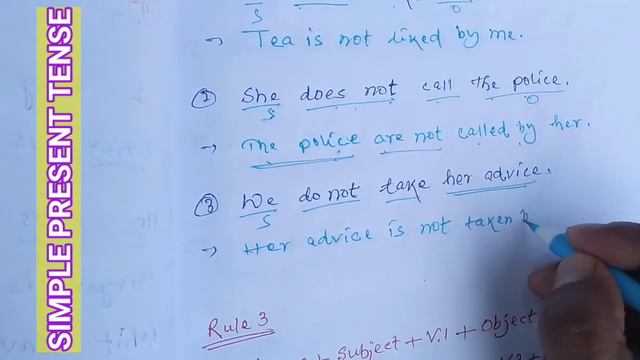 SIMPLE PRESENT TENSE
S
O
→ Tea is not liked by me.
② She does not call the police.
S
O
→ The police are not called by her.
③ We do not take her advice.
S
→ Her advice is not taken
Rule 3
+ Subject + V.1 + Object